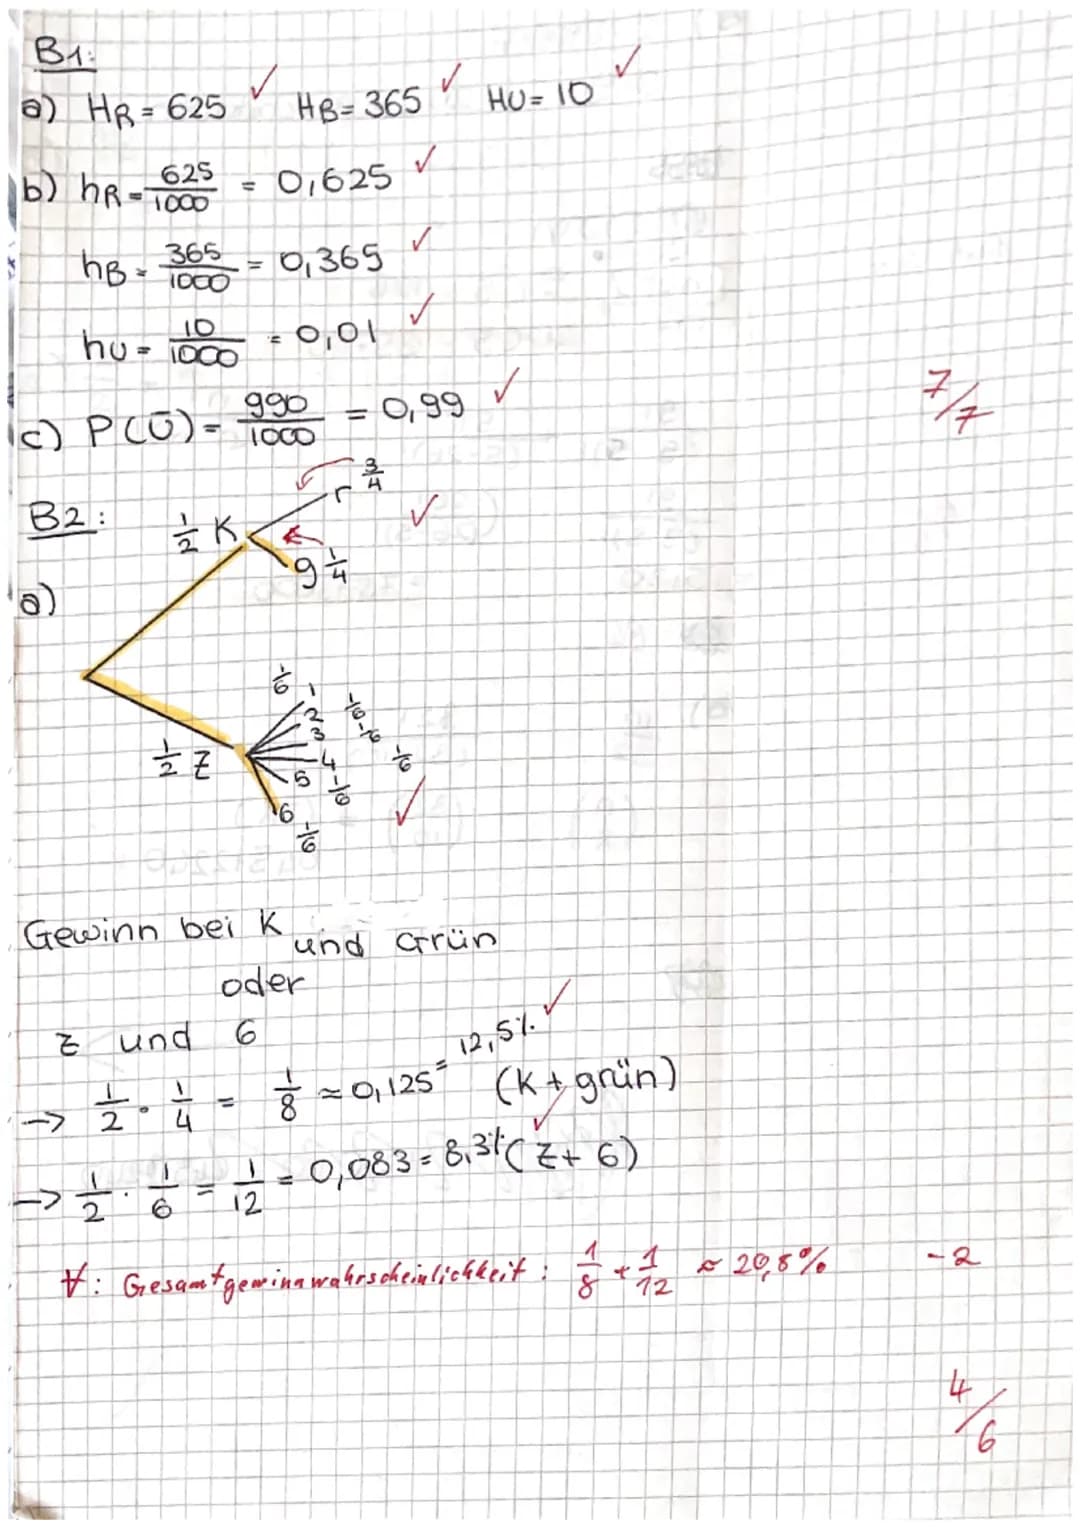 B1:
a) HR = 625 ✓ HB = 365 ✓ HU = 10 ✓
b) hR = 625/1000 = 0,625 ✓
hB = 365/1000 = 0,365 ✓
hU = 10/1000 = 0,01 ✓
c) P(Ū) = 990/1000 = 0,99 ✓
7/7
B2:
a)
1/2 K
r 3/4 ✓
g 1/4
1/2 Z
1/6 1
2 1/6
3 1/6
4 1/6
5 1/6
6 1/6 ✓
Gewinn bei K und Grün
oder
Z und 6
→ 1/2 · 1/4 = 1/8 ≈ 0,125 = 12,5% ✓ (K + grün)
→ 1/2 · 1/6 = 1/12 = 0,083 = 8,3% ✓ (Z + 6)
∀: Gesamtgewinnwahrscheinlichkeit: 1/8 + 1/12 ≈ 20,8% -2
4/6